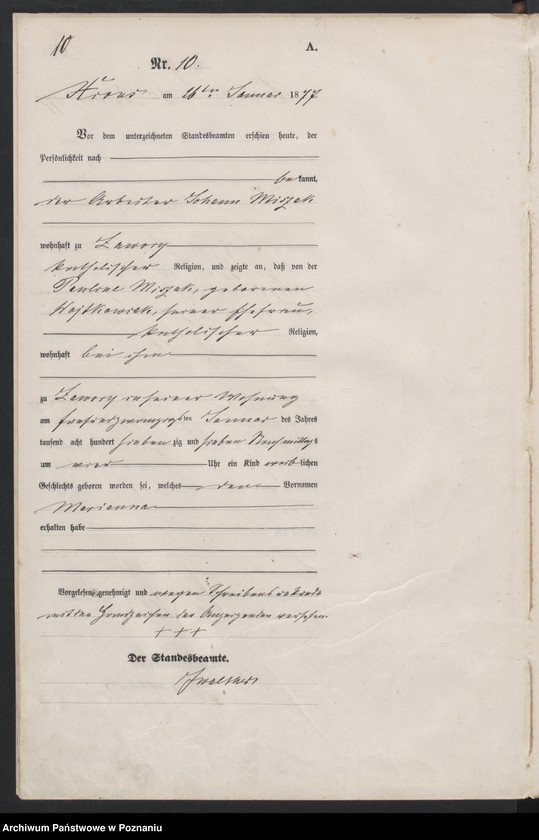 10 A.
Nr. 10.
am 26ten Januar 1877
Vor dem unterzeichneten Standesbeamten erschien heute, der
Persönlichkeit nach
bekannt,
der Arbeiter Johann Miszak
wohnhaft zu Zawory
katholischer Religion, und zeigte an, daß von der
Pauline Miszak, geborenen
seiner Ehefrau,
katholischer Religion,
wohnhaft bei ihm
zu Zawory in seiner Wohnung
am ten Januar des Jahres
tausend acht hundert siebenzig und sieben Nachmittags
um vier Uhr ein Kind weiblichen
Geschlechts geboren worden sei, welches den Vornamen
Marianna
erhalten habe
Vorgelesen, genehmigt und wegen Schreibensunkunde
mit den Handzeichen des Anzeigenden versehen.
+++
Der Standesbeamte.
Archiwum Państwowe w Poznaniu